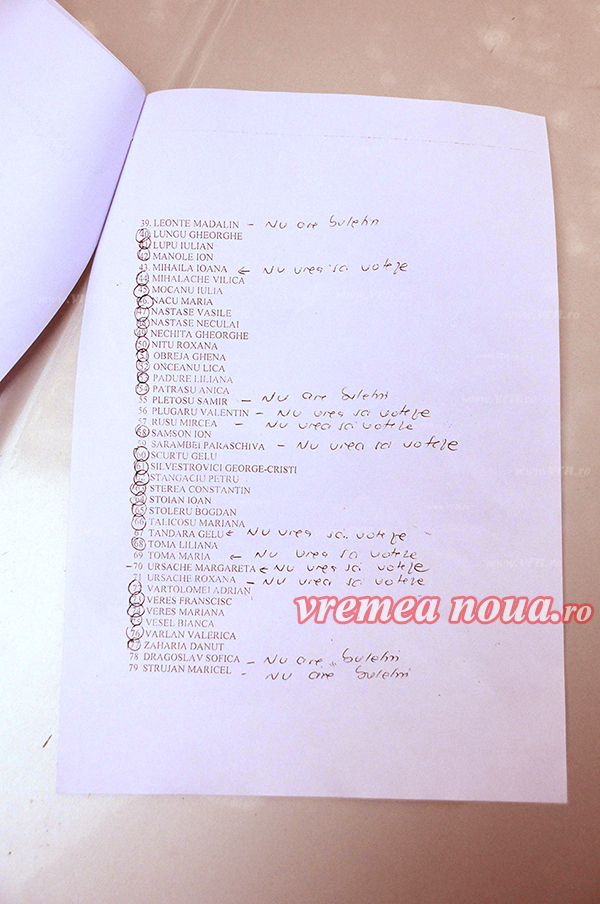 39. LEONTE MADALIN - Nu are buletin
40. LUNGU GHEORGHE
41. LUPU IULIAN
42. MANOLE ION
43. MIHAILA IOANA ← Nu vrea să voteze
44. MIHALACHE VILICA
45. MOCANU IULIA
46. NACU MARIA
47 NASTASE VASILE
48 NASTASE NECULAI
49 NECHITA GHEORGHE
50 NITU ROXANA
51 OBREJA GHENA
52 ONCEANU LICA
53 PADURE LILIANA
54 PATRASU ANICA
55 PLETOSU SAMIR - Nu are buletin
56 PLUGARU VALENTIN - Nu vrea să voteze
57 RUSU MIRCEA - Nu vrea să voteze
58 SAMSON ION
59 SARAMBEI PARASCHIVA - Nu vrea să voteze
60 SCURTU GELU
61 SILVESTROVICI GEORGE-CRISTI
62 STANGACIU PETRU
63 STEREA CONSTANTIN
64 STOIAN IOAN
65 STOLERU BOGDAN
66 TALICOSU MARIANA
67 TANDARA GELU ← Nu vrea să voteze
68 TOMA LILIANA
69 TOMA MARIA ← Nu vrea să voteze
-70 URSACHE MARGARETA ← Nu vrea să voteze
71 URSACHE ROXANA - Nu vrea să voteze
72 VARTOLOMEI ADRIAN
73 VERES FRANSCISC
74 VERES MARIANA
75 VESEL BIANCA
76 VARLAN VALERICA
77 ZAHARIA DANUT
78 DRAGOSLAV SOFICA - Nu are buletin
79 STRUJAN MARICEL - Nu are buletin
vremea noua.ro